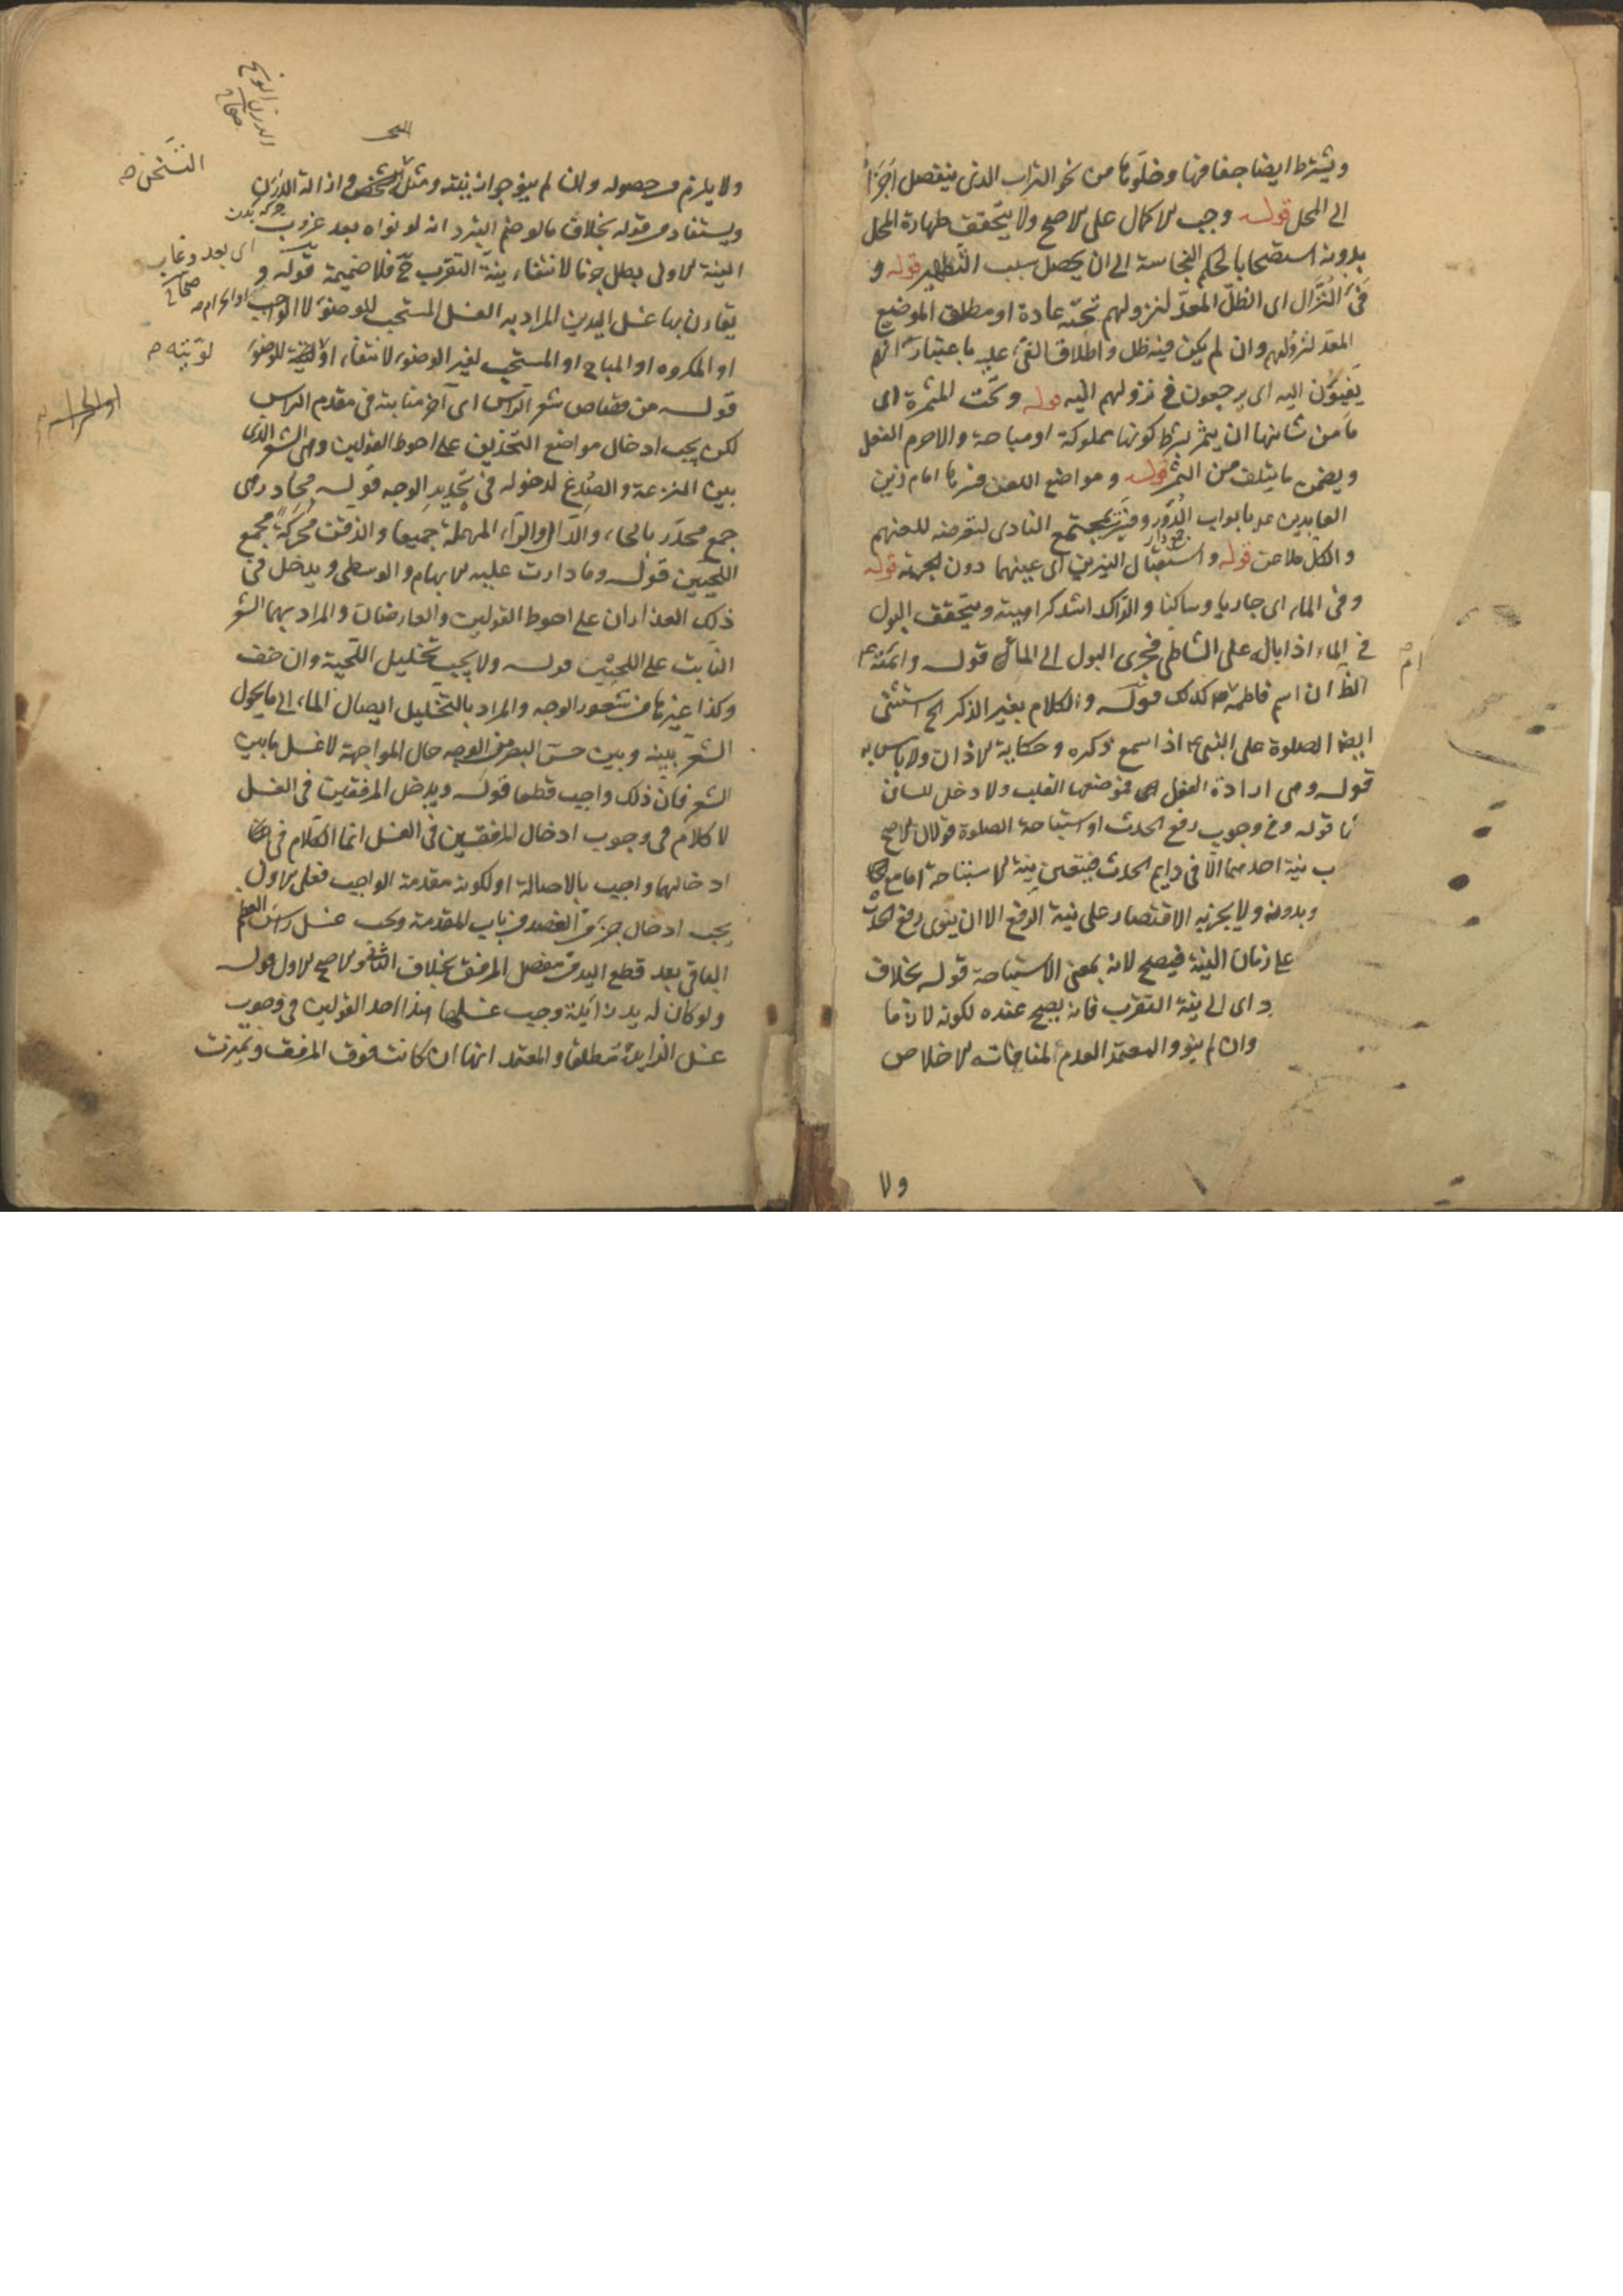 ويشترط ايضا جفافها وخلوها من نحو التراب الذى ينفصل اجزا
الى المحل قوله وجب الاكمال على الاصح ولا يتحقق طهارة المحل
بدونه استصحابا لحكم النجاسة الى ان يحصل سبب التطهير قوله و
فَىْء النزّال اى الظلّ المعدّ لنزولهم تحته عادة او مطلق الموضع
المعدّ لنزولهم وان لم يكن فيه ظل واطلاق الفىء عليه باعتبار انهم
يفيئون اليه اى يرجعون فى نزولهم اليه قوله وتحت المثمرة اى
ما من شانها ان يثمر بشرط كونها مملوكة او مباحة والاحرم الفعل
ويضمن ما يتلف من الثمر قوله ومواضع اللعن فسرها امام زين
العابدين ع بابواب الدُّور وفسّر بمجتمع النادى لتعرضه للعنهم
جمع دار
والكل ملاعن قوله واستقبال النيرين اى عينهما دون الجهة قوله
وفى الماء اى جاريا وساكنا والراكد اشد كراهية ويتحقق البول
فى الماء اذا بال على الشاطى فجرى البول الى الماء قوله وائمته ع
الظ ان اسم فاطمة ع كذلك قوله والكلام بغير الذكر الخ استثنى
ايضا الصلوة على النبى ع اذا سمع ذكره وحكاية الاذان ولا باس به
قوله وهى ارادة الفعل اه فموضعها القلب ولا دخل للسان
قوله وفى وجوب رفع الحدث او استباحة الصلوة قولان الاصح
نية احدهما الا فى دايم الحدث فيتعين نية الاستباحة اما مع
وبدونه ولا يجزيه الاقتصار على نية الرفع الا ان ينوى رفع الحدث
على زمان النية فيصح لانه بمعنى الاستباحة قوله بخلاف
اى الى نية التقرب فانه يصح عنده لكونه لازما
وان لم ينو والمعتمد العدم لمنافاته الاخلاص
ولا
الدرن الوسخ
صحاح
التسخن صح
ولا يلزم من حصوله وان لم ينو جواز نيته ومثل وازالة الدرن
ويستفاد من قوله بخلاف ما لو ضم التبرد انه لو نواه بعد عزوب
اى بعد وغاب
صحاح
النية الاولى بطل جزما لانتفاء نية التقرب ح فلا ضميمة قوله و
يقارن بها غسل اليدين المراد به الغسل المستحب للوضوء لا الواجب
او الحرام صح
او المكروه او المباح او المستحب لغير الوضوء لانتفاء للوضوء
لوّيّته صح
قوله من قصاص شعر الراس اى آخر منابته فى مقدم الراس
لكن يجب ادخال مواضع التحذيف على احوط القولين وهى الشعر الذى
بين النزعة والصدغ لدخوله فى تحديد الوجه قوله محادر هى
جمع محدر بالحاء والدال والراء المهملة جميعا والذقن محركة مجمع
اللحيين قوله وما دارت عليه الابهام والوسطى ويدخل فى
ذلك العذاران على احوط القولين والعارضان والمراد بهما الشعر
النابت على اللحيين قوله ولا يجب تخليل اللحية وان خفت
وكذا غيرها من شعور الوجه والمراد بالتخليل ايصال الماء الى ما يحول
الشعر بينه وبين حس البصر من الوجه حال المواجهة لا غسل ما بين
الشعر فان ذلك واجب قطعا قوله ويدخل المرفقين فى الغسل
لا كلام فى وجوب ادخال المرفقين فى الغسل انما الكلام فى
ادخالهما واجب بالاصالة او لكونه مقدمة الواجب فعلى الاول
يجب ادخال جزء من العضد من باب المقدمة ويجب غسل راس العظم
الباقى بعد قطع اليد من مفصل المرفق بخلاف الثانى والاصح الاول قوله
ولو كان له يد زائدة وجب غسلها هذا احد القولين فى وجوب
غسل الزايدة مطلقا والمعتمد انها ان كانت فوق المرفق وتميزت